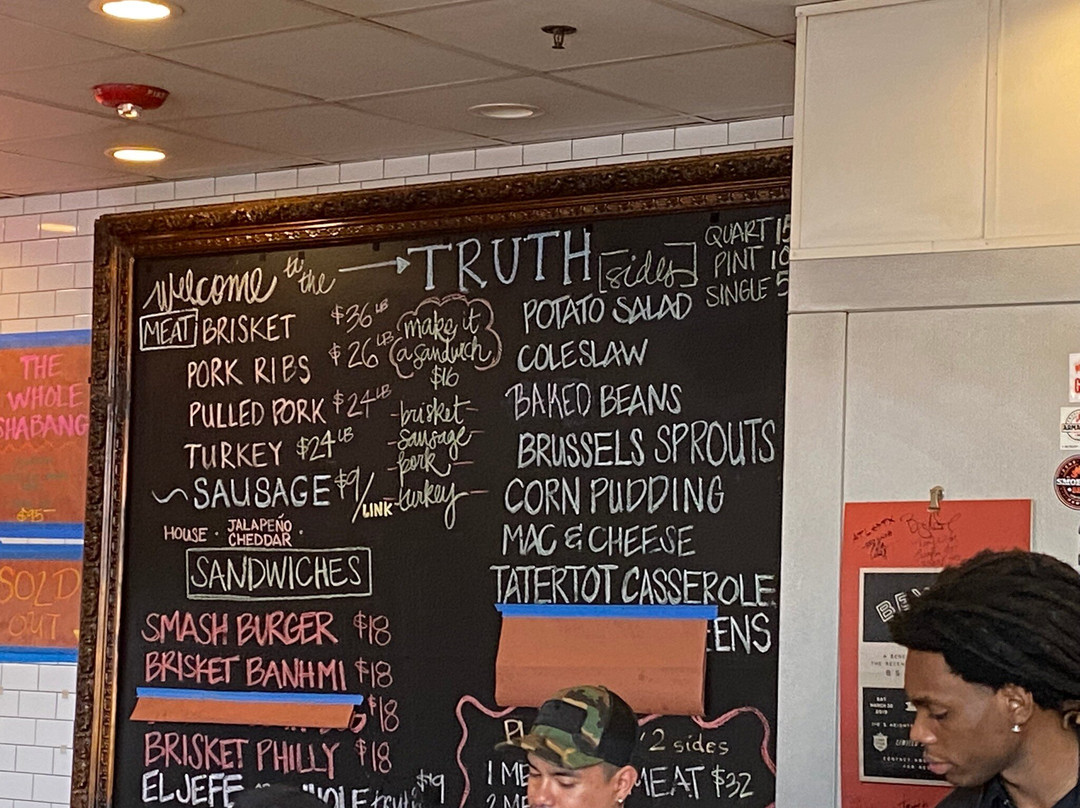 Welcome to the → TRUTH
MEAT BRISKET $36 LB
PORK RIBS $26 LB
PULLED PORK $24 LB
TURKEY $24 LB
SAUSAGE $9/LINK
HOUSE · JALAPEÑO CHEDDAR ·
make it
a sandwich
$16
-brisket-
-sausage-
-pork-
-turkey-
SANDWICHES
SMASH BURGER $18
BRISKET BANHMI $18
$18
BRISKET PHILLY $18
EL JEFE $19
[sides]
QUART 15
PINT 10
SINGLE 5
POTATO SALAD
COLESLAW
BAKED BEANS
BRUSSELS SPROUTS
CORN PUDDING
MAC & CHEESE
TATERTOT CASSEROLE
EENS
2 sides
1 ME MEAT $32
THE
WHOLE
SHABANG
$95
SOLD
OUT